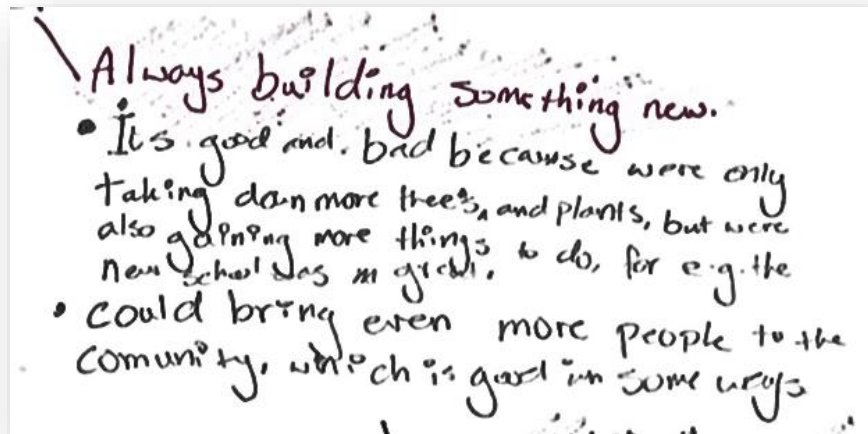 Always building something new.
• Its good and. bad because were only
taking down more trees, and plants, but were
also gaining more things to do, for e.g. the
new school was in
• could bring even more people to the
comunity, which is good in some ways